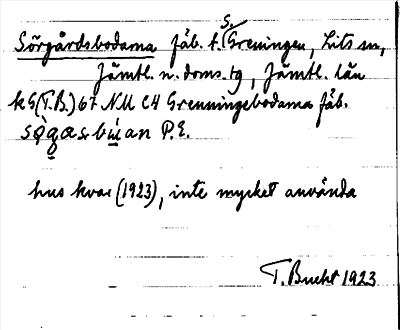 S.
Sörgårdsbodarna fäb. t. Greningen, Lits sn,
Jämtl. n. doms. tg, Jämtl. län
k G (T.B.) 67 NU C4 Grenningebodarna fäb.
P.E.
hus kvar (1923), inte mycket använda
T. Bucht 1923